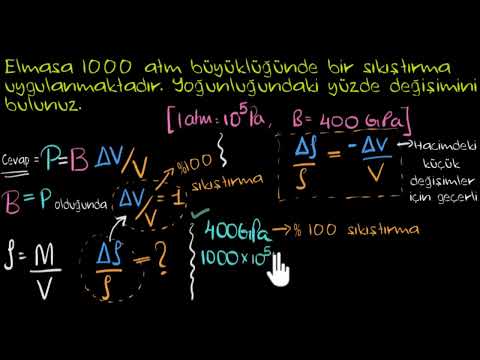 Elmasa 1000 atm büyüklüğünde bir sıkıştırma
uygulanmaktadır. Yoğunluğundaki yüzde değişimini
bulunuz.
[1 atm = 10⁵ Pa, B = 400 GPa]
Cevap = P = B ΔV/V
%100
sıkıştırma
B = P olduğunda ΔV/V = 1
Δρ/ρ = -ΔV/V
Hacimdeki
küçük
değişimler
için geçerli
ρ = M/V
Δρ/ρ = ?
400 GPa → % 100 sıkıştırma
1000 × 10⁵